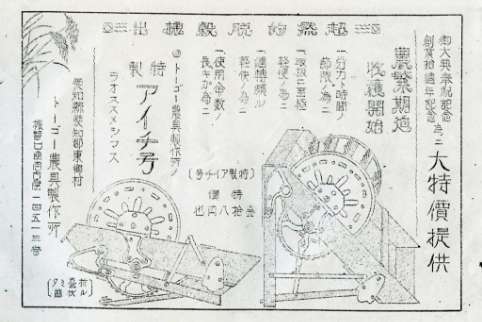 超然的脱穀機出三
御大典奉祝記念
創業拾週年記念ノ為ニ
大特價提供
農繁期迫
収穫開始
一、労力ト時間ノ
節限ノ為ニ
一、取扱ニ至極
軽便ノ為ニ
一、運轉頗ル
軽快ノ為ニ
一、使用命数ノ
長キガ為ニ
◎トーゴー農具製作所ノ
特製
アイチ号
ヲオススメシマス
(特製アイチ号)
特價
金拾八円也
愛知縣愛知郡東郷村
トーゴー農具製作所
振替口座名古屋一四五一三番